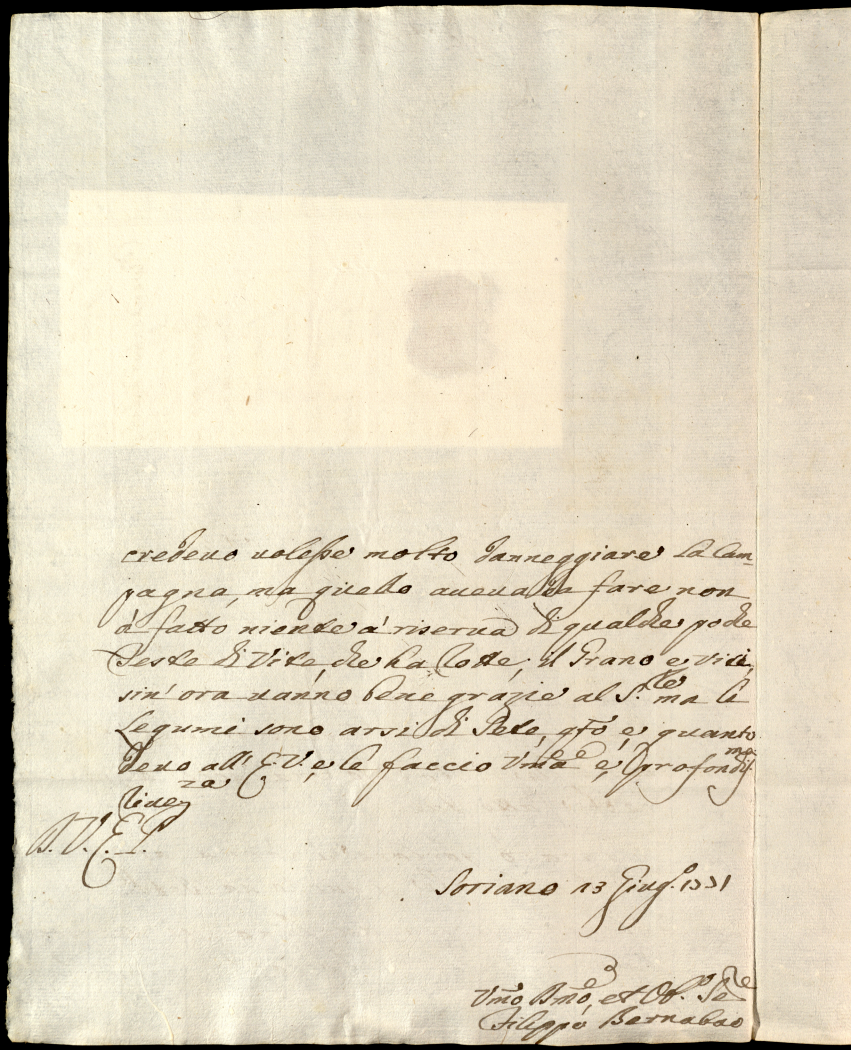 credevo volesse molto danneggiare la Cam=
pagna, ma quello aveva da fare non
à fatto niente a' riserva di qualche poche
teste di Vite, che ha rotte, il Grano e viti,
sin' ora vanno bene grazie al S.re ma li
Legumi sono arsi di Sete, q.to è quanto
devo all' E. V. e le faccio Vma e profondis.ma
river.za
D. V. E.
Soriano 13 Giug.o 1731
Vmo Dmo, et Ob.o Se.re
Filippo Bernabao